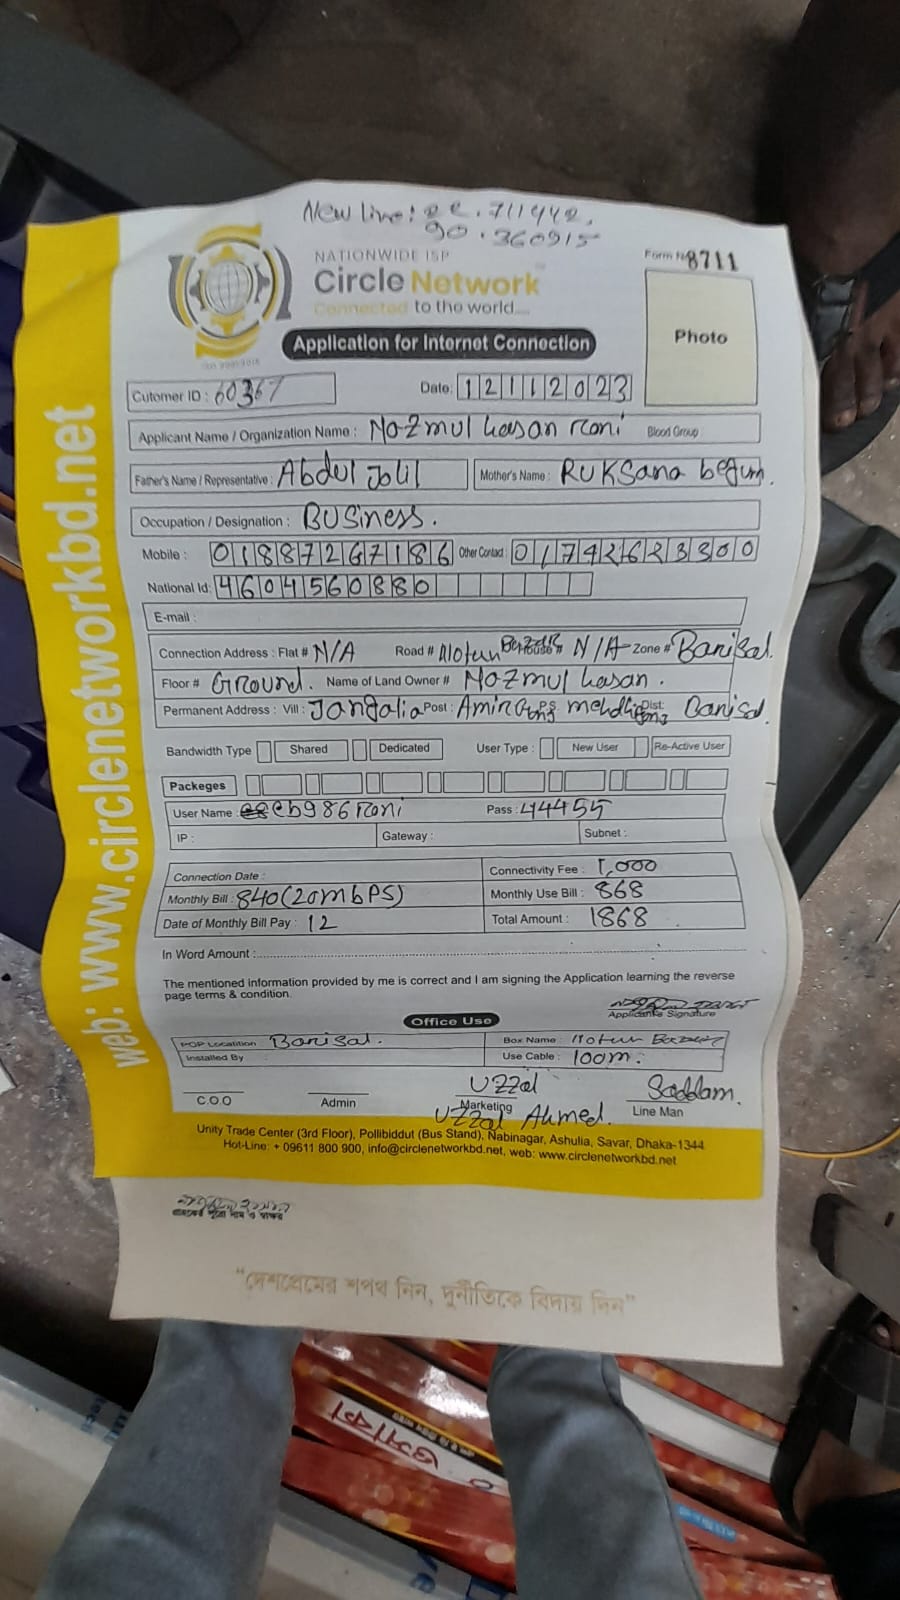 New line: 22.711442,
90.360915
NATIONWIDE ISP
Circle Network
Connected to the world....
Form No 8711
Photo
Application for Internet Connection
Cutomer ID : 60367
Date: 12112023
Applicant Name / Organization Name : Nozmul hasan roni Blood Group :
Father's Name / Representative : Abdul Jolil Mother's Name : Ruksana begum.
Occupation / Designation : Business.
Mobile : 01887267186 Other Contact : 01742623300
National Id: 4604560880
E-mail :
Connection Address : Flat # N/A Road # Notun Bazar House # N/A Zone # Barisal.
Floor # Ground. Name of Land Owner # Nozmul hasan.
Permanent Address : Vill : Jangalia Post : Amirgong PS mehdigong Dist: Barisal.
Bandwidth Type Shared Dedicated User Type : New User Re-Active User
Packeges
User Name : cb986roni Pass : 44455
IP : Gateway : Subnet :
Connection Date : Connectivity Fee : 1,000
Monthly Bill : 840 (20mbPS) Monthly Use Bill : 868
Date of Monthly Bill Pay : 12 Total Amount : 1868
In Word Amount :
The mentioned information provided by me is correct and I am signing the Application learning the reverse
page terms & condition.
Applicant's Signature
Office Use
POP Location Barisal. Box Name : Notun Bazar
Installed By Use Cable : 100m.
Uzzal Saddam.
C.O.O Admin Marketing Line Man
Uzzal Ahmed.
Unity Trade Center (3rd Floor), Pollibiddut (Bus Stand), Nabinagar, Ashulia, Savar, Dhaka-1344
Hot-Line: + 09611 800 900, info@circlenetworkbd.net, web: www.circlenetworkbd.net
web: www.circlenetworkbd.net
গ্রাহকের পুরো নাম ও স্বাক্ষর
“দেশপ্রেমের শপথ নিন, দুর্নীতিকে বিদায় দিন”